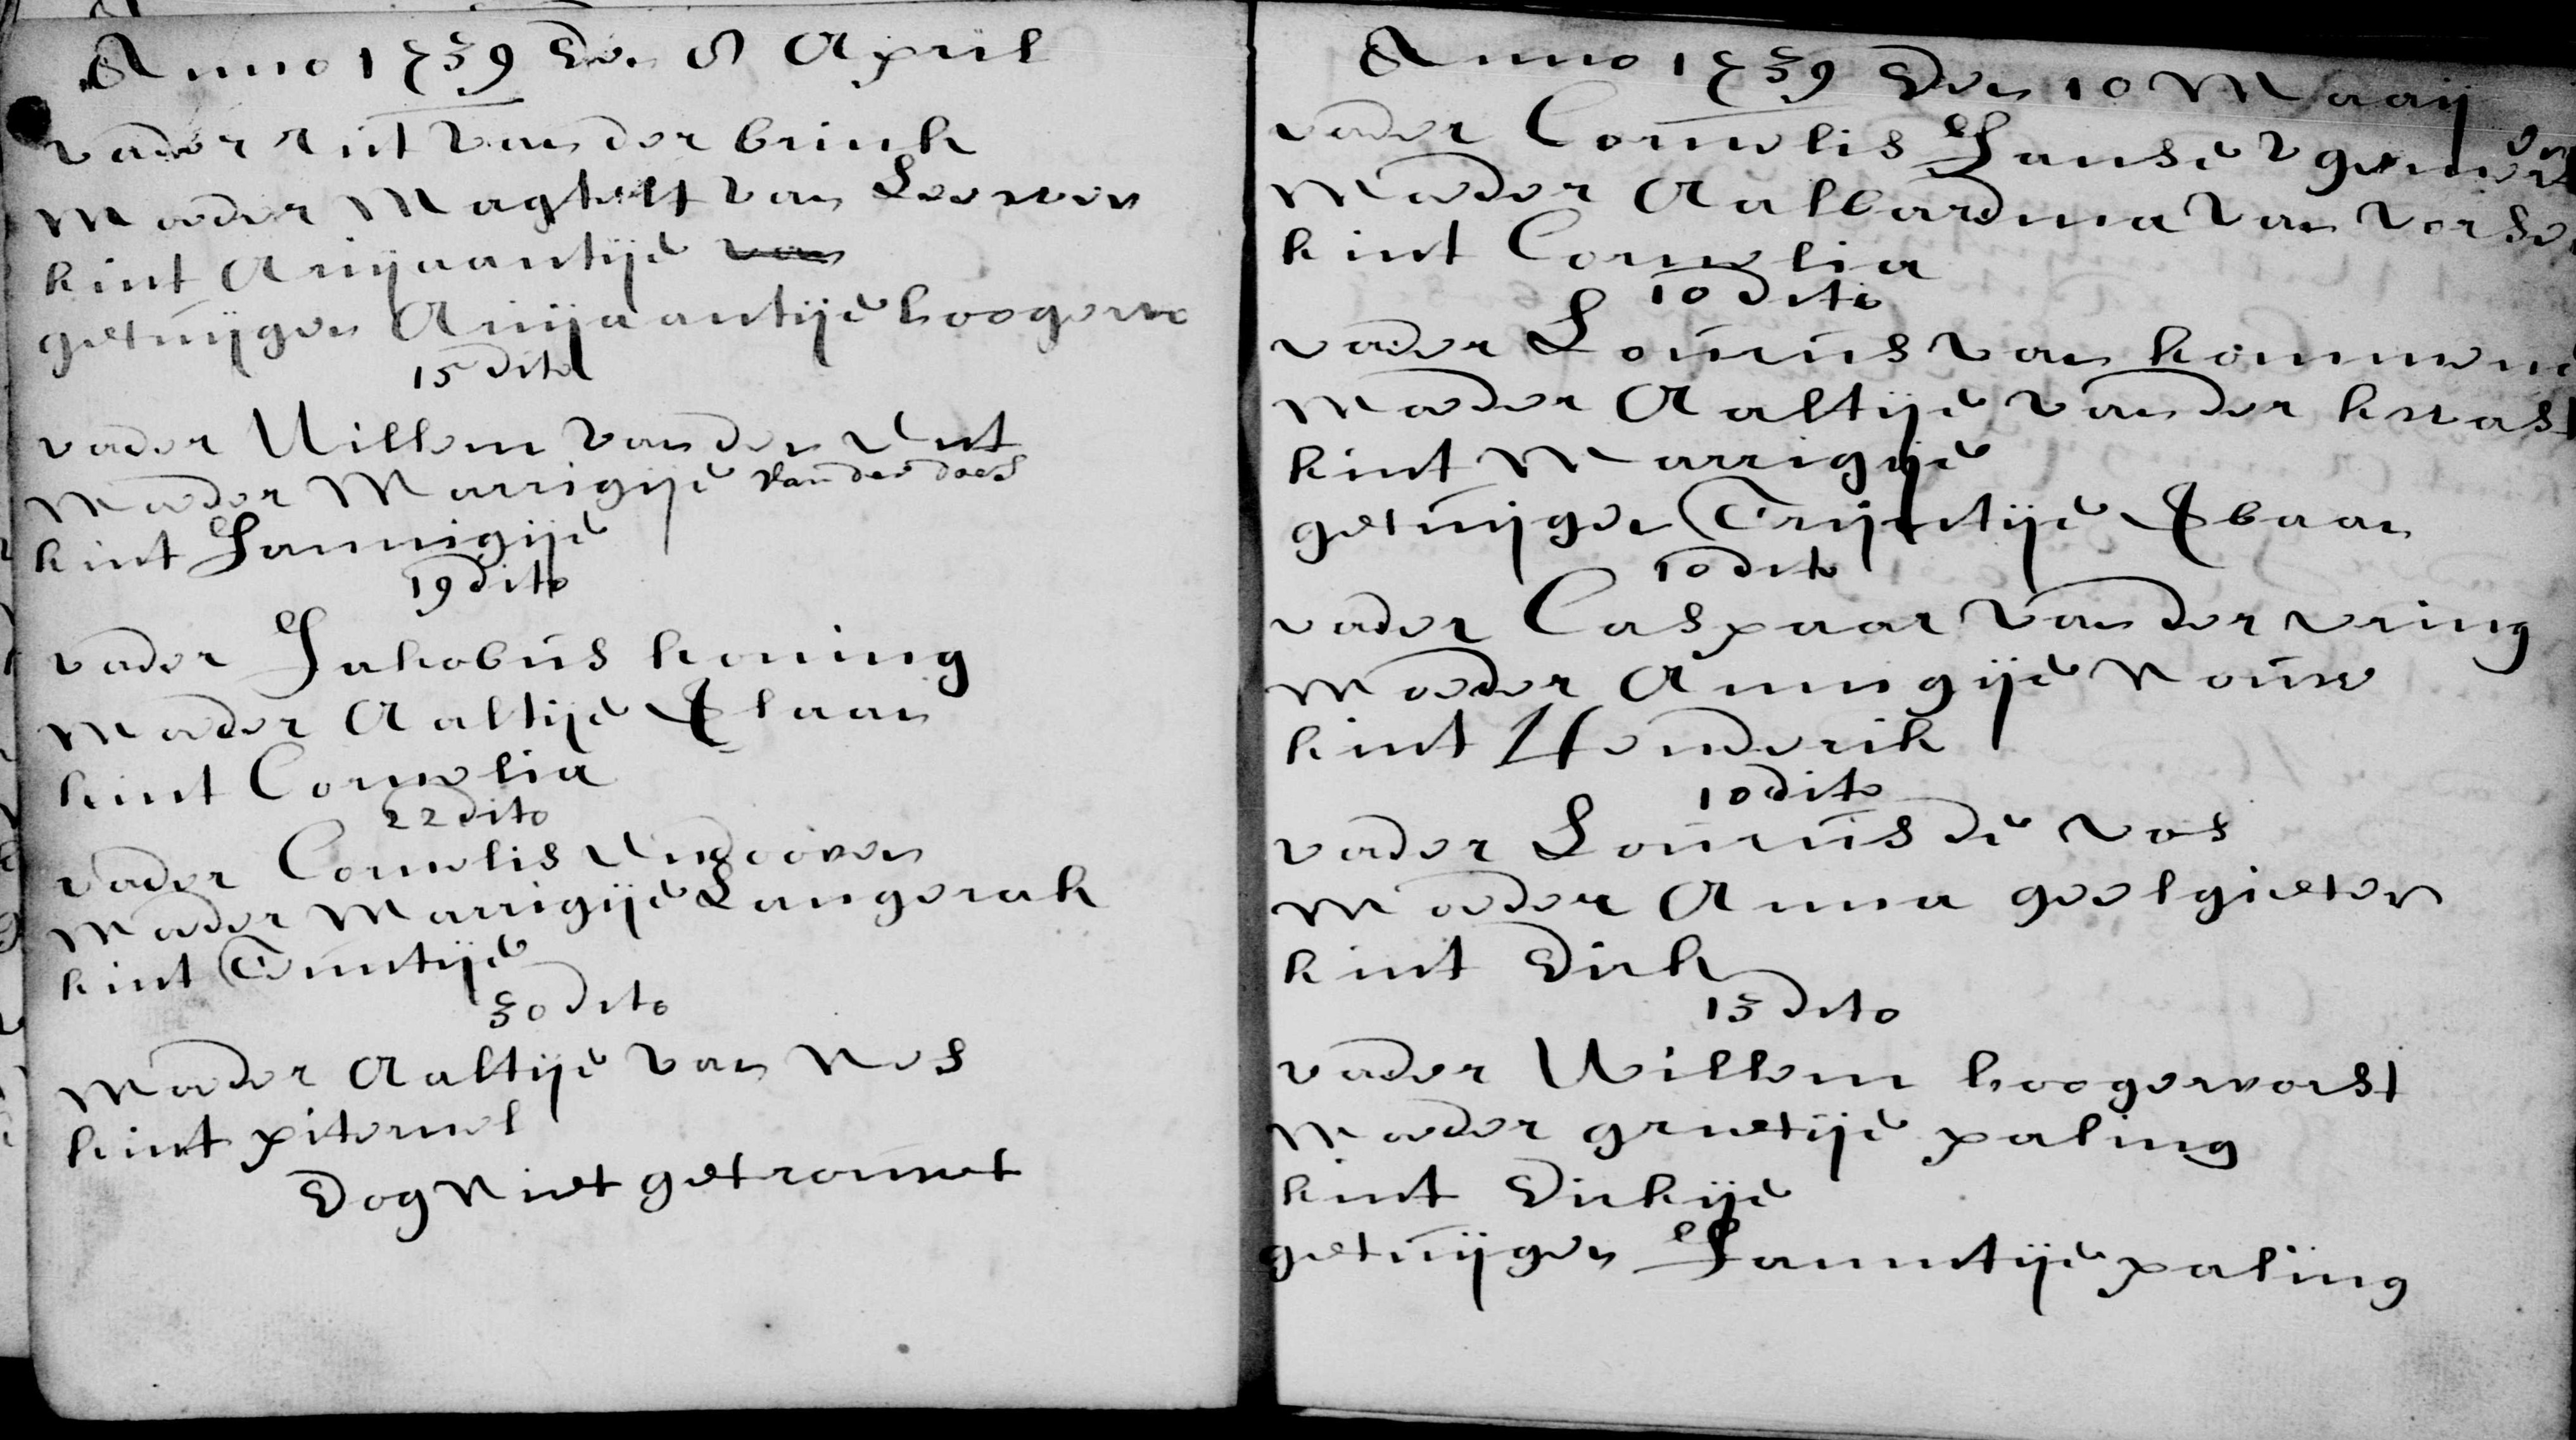 Anno 1739 Den 8 April
vader Arit van der brink
Moeder Magtelt van Leewen
kint Arijaantije van
getuijgen Arijaantije hoogerve
15 dito
vader Willem van den Ent
Moeder Marrigije van der does
kint Jannigije
19 dito
vader Jakobus koning
Moeder Aaltije Blaan
kint Cornelia
22 dito
vader Cornelis Endooven
Moeder Marrigije Langerak
kint Teuntije
30 dito
Moeder Aaltije van Nes
kint piternel
Dog Niet getrouwt
Anno 1739 Den 10 Maaij
vader Cornelis Janse
Moeder Aalbardina van
kint Cornelia
10 dito
vader Lourus van
Moeder Aaltije van der
kint Marrigije
getuijgen Trijntije Blaan
10 dito
vader Caspaar van der vring
Moeder Annigije Nouw
kint Henderik
10 dito
vader Lourus de vos
Moeder Anna geelgieter
kint Dirk
13 dito
vader Willem hoogervorst
Moeder grietije paling
kint Dirkije
getuijgen Jannetije paling